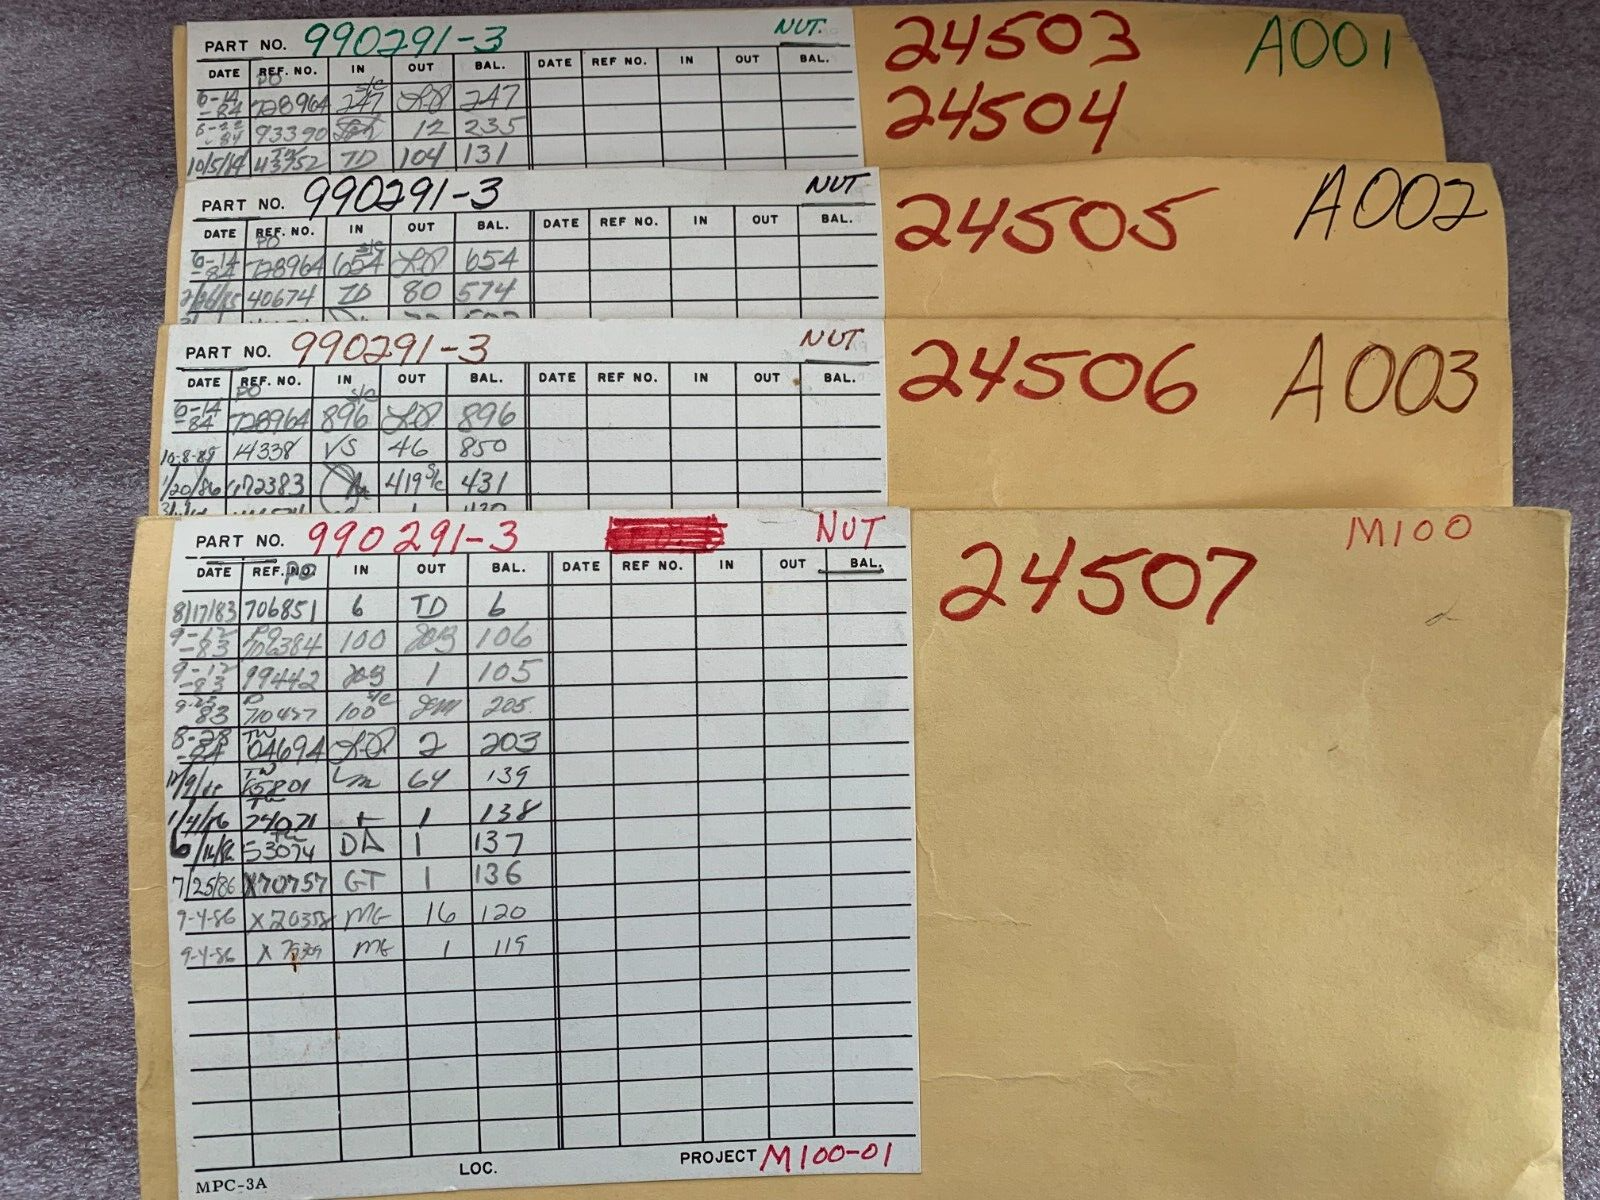 PART NO. 990291-3 NUT. 24503 A001
DATE REF. NO. IN OUT BAL. DATE REF NO. IN OUT BAL.
PO s/c
6-14-84 728964 247 247
24504
93390 12 235
10/5/84 43752 TD 104 131
PART NO. 990291-3 NUT 24505 A002
DATE REF. NO. IN OUT BAL. DATE REF NO. IN OUT BAL.
PO s/c
6-14-84 728964 654 654
40674 TD 80 574
PART NO. 990291-3 NUT 24506 A003
DATE REF. NO. IN OUT BAL. DATE REF NO. IN OUT BAL.
PO s/c
6-14-84 728964 896 896
10-8-85 14338 VS 46 850
1/20/86 419 s/c 431
PART NO. 990291-3 NUT 24507 M100
DATE REF. NO. PO IN OUT BAL. DATE REF NO. IN OUT BAL.
8/17/83 706851 6 TD 6
9-12-83 706384 100 106
9-12-83 99442 1 105
83 710457 100 s/c 205
8-28-84 TW 04694 2 203
TW 64 139
1/4/86 TW 24071 1 138
53074 DA 1 137
7/25/86 X70757 GT 1 136
9-4-86 X20358 MG 16 120
9-4-86 X MG 1 119
LOC. PROJECT M100-01
MPC-3A